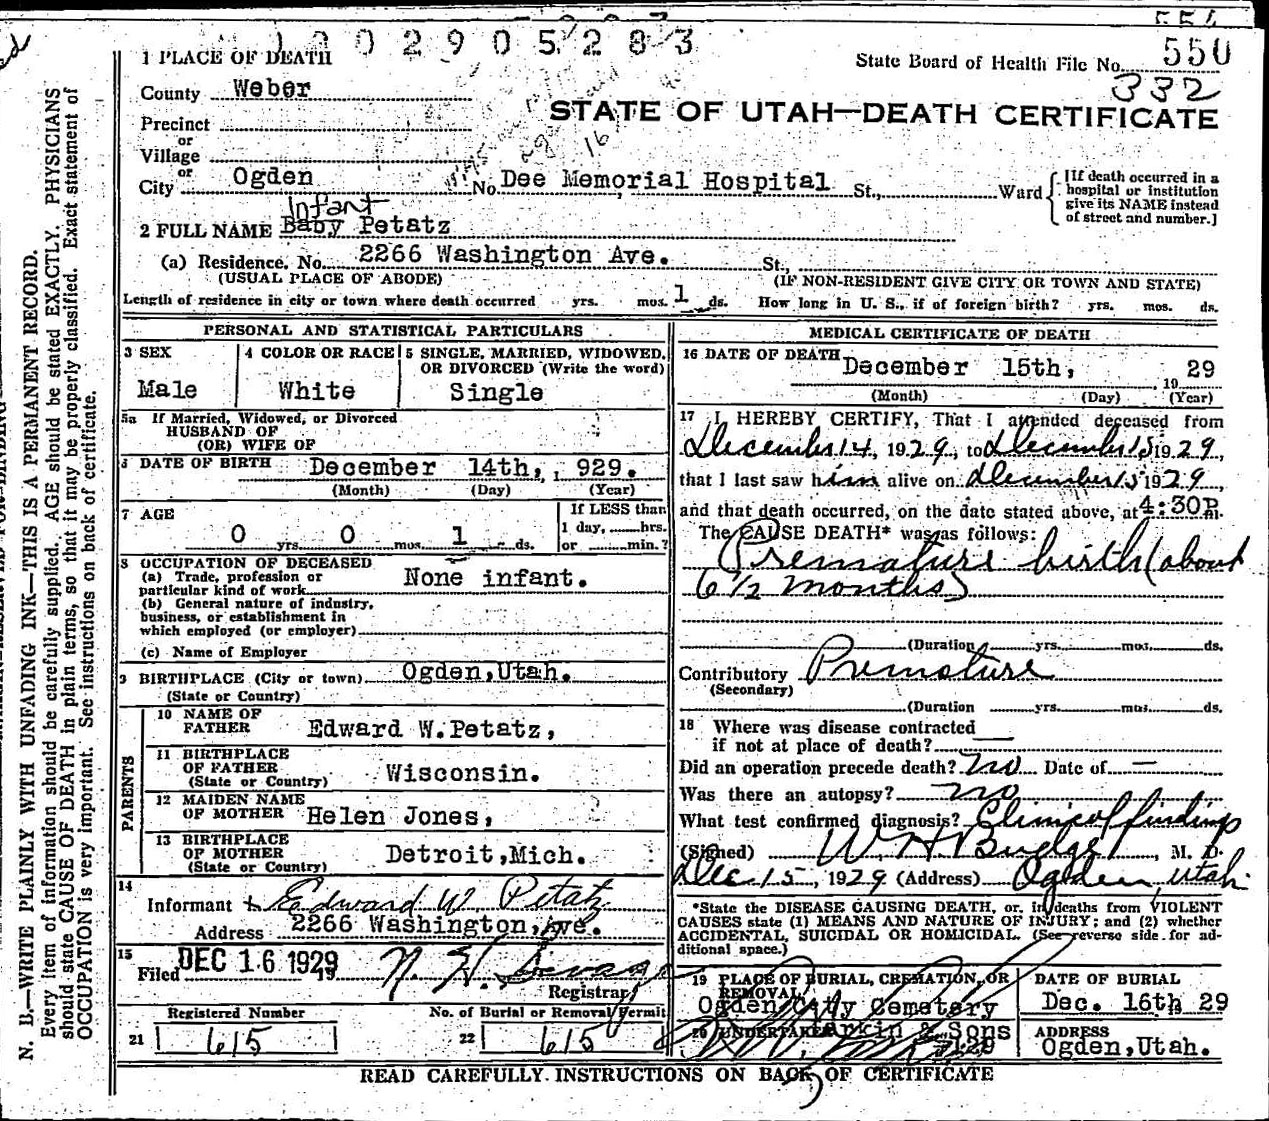 1 0 0 2 9 0 5 2 8 3
1 PLACE OF DEATH
State Board of Health File No. 550
332
County Weber
STATE OF UTAH—DEATH CERTIFICATE
Precinct
or
Village
or
City Ogden No. Dee Memorial Hospital St., Ward
[If death occurred in a
hospital or institution
give its NAME instead
of street and number.]
Infant
2 FULL NAME Baby Petatz
(a) Residence. No. 2266 Washington Ave. St.,
(USUAL PLACE OF ABODE) (IF NON-RESIDENT GIVE CITY OR TOWN AND STATE)
Length of residence in city or town where death occurred yrs. mos. 1 ds. How long in U. S., if of foreign birth? yrs. mos. ds.
PERSONAL AND STATISTICAL PARTICULARS
3 SEX
Male
4 COLOR OR RACE
White
5 SINGLE, MARRIED, WIDOWED,
OR DIVORCED (Write the word)
Single
5a If Married, Widowed, or Divorced
HUSBAND OF
(OR) WIFE OF
DATE OF BIRTH December 14th, , 929.
(Month) (Day) (Year)
7 AGE
0 yrs. 0 mos. 1 ds.
If LESS than
1 day, hrs.
or min.?
8 OCCUPATION OF DECEASED
(a) Trade, profession or
particular kind of work None infant.
(b) General nature of industry,
business, or establishment in
which employed (or employer)
(c) Name of Employer
9 BIRTHPLACE (City or town) Ogden,Utah.
(State or Country)
PARENTS
10 NAME OF
FATHER Edward W.Petatz,
11 BIRTHPLACE
OF FATHER
(State or Country) Wisconsin.
12 MAIDEN NAME
OF MOTHER Helen Jones,
13 BIRTHPLACE
OF MOTHER
(State or Country) Detroit,Mich.
14
Informant Edward W Petatz
Address 2266 Washington Ave.
15
Filed DEC 16 1929
Registrar
Registered Number
21 615
No. of Burial or Removal Permit
22 615
MEDICAL CERTIFICATE OF DEATH
16 DATE OF DEATH December 15th, 19 29
(Month) (Day) (Year)
17 I HEREBY CERTIFY, That I attended deceased from
December 14, 1929, to December 15 1929,
that I last saw him alive on December 15 1929,
and that death occurred, on the date stated above, at 4:30P m.
The CAUSE DEATH* was as follows:
Premature birth (about
6 1/2 months)
(Duration yrs. mos. ds.
Contributory Premature
(Secondary)
(Duration yrs. mos. ds.
18 Where was disease contracted
if not at place of death?
Did an operation precede death? no Date of —
Was there an autopsy? no
What test confirmed diagnosis? Clinical findings
(Signed) W. H Budge, M. D.
Dec 15, 1929 (Address) Ogden, Utah.
*State the DISEASE CAUSING DEATH, or, in deaths from VIOLENT
CAUSES state (1) MEANS AND NATURE OF INJURY; and (2) whether
ACCIDENTAL, SUICIDAL OR HOMICIDAL. (See reverse side for ad-
ditional space.)
19 PLACE OF BURIAL, CREMATION, OR
REMOVAL
Ogden City Cemetery
DATE OF BURIAL
Dec. 16th 29
20 UNDERTAKER Larkin & Sons
ADDRESS
Ogden,Utah.
READ CAREFULLY INSTRUCTIONS ON BACK OF CERTIFICATE
N. B.—WRITE PLAINLY WITH UNFADING INK—THIS IS A PERMANENT RECORD.
Every item of information should be carefully supplied. AGE should be stated EXACTLY. PHYSICIANS
should state CAUSE OF DEATH in plain terms, so that it may be properly classified. Exact statement of
OCCUPATION is very important. See instructions on back of certificate.